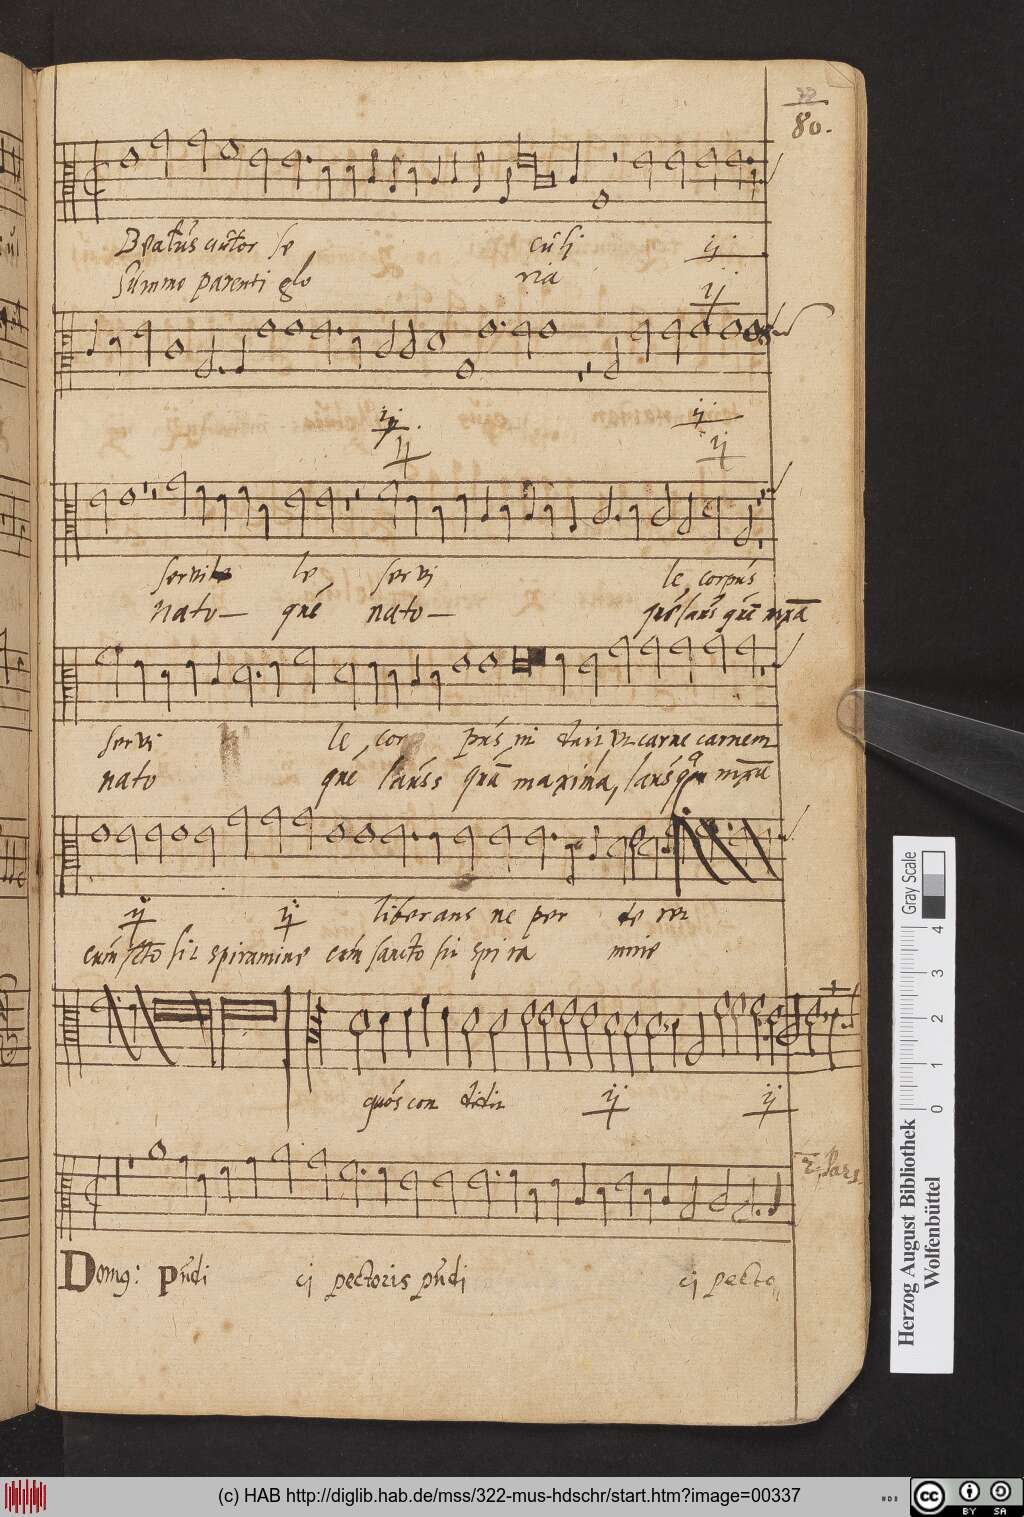 80.
Beatus autor se culi ij
Summo parenti glo ria ij
ij ij
ij ij
servile le servi le corpus
nato que nato que laus que mxa
servi le, cor pus in duit vt carne carnem
nato que lauss qua maxima, laus qu mxa
ij ij liberans ne per de ret
cum scto sit spiramine cum sancto sit spi ra mine
quos con didit ij ij
2. Pars
Domg: pudi ci pectoris pudi ci pecto
Gray Scale
4
3
2
1
0
Herzog August Bibliothek
Wolfenbüttel
(c) HAB http://diglib.hab.de/mss/322-mus-hdschr/start.htm?image=00337
cc BY SA